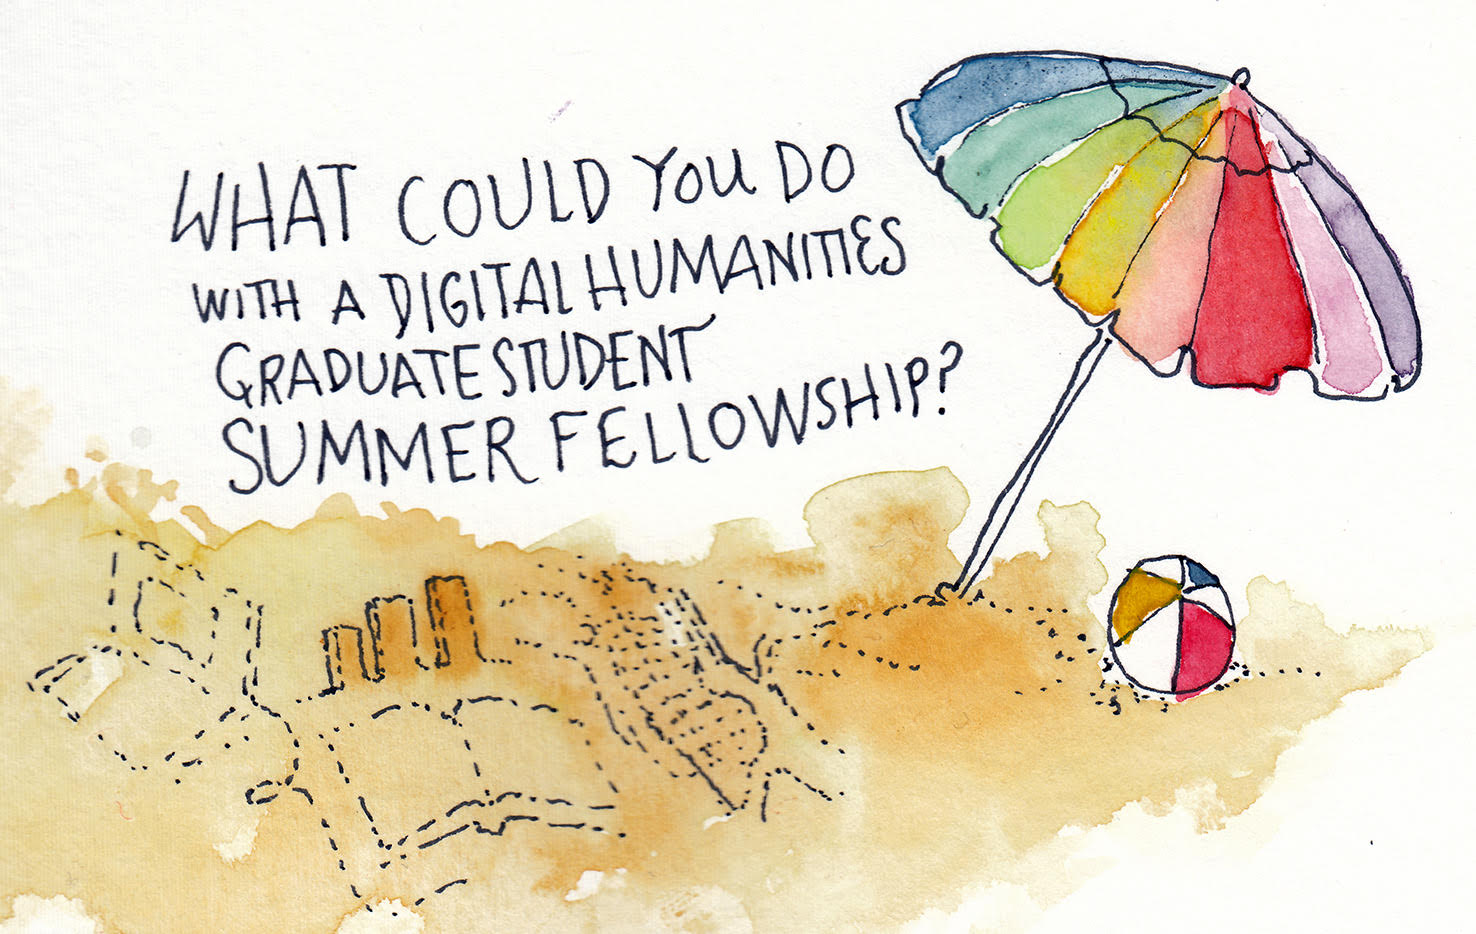 WHAT COULD YOU DO
WITH A DIGITAL HUMANITIES
GRADUATE STUDENT
SUMMER FELLOWSHIP?